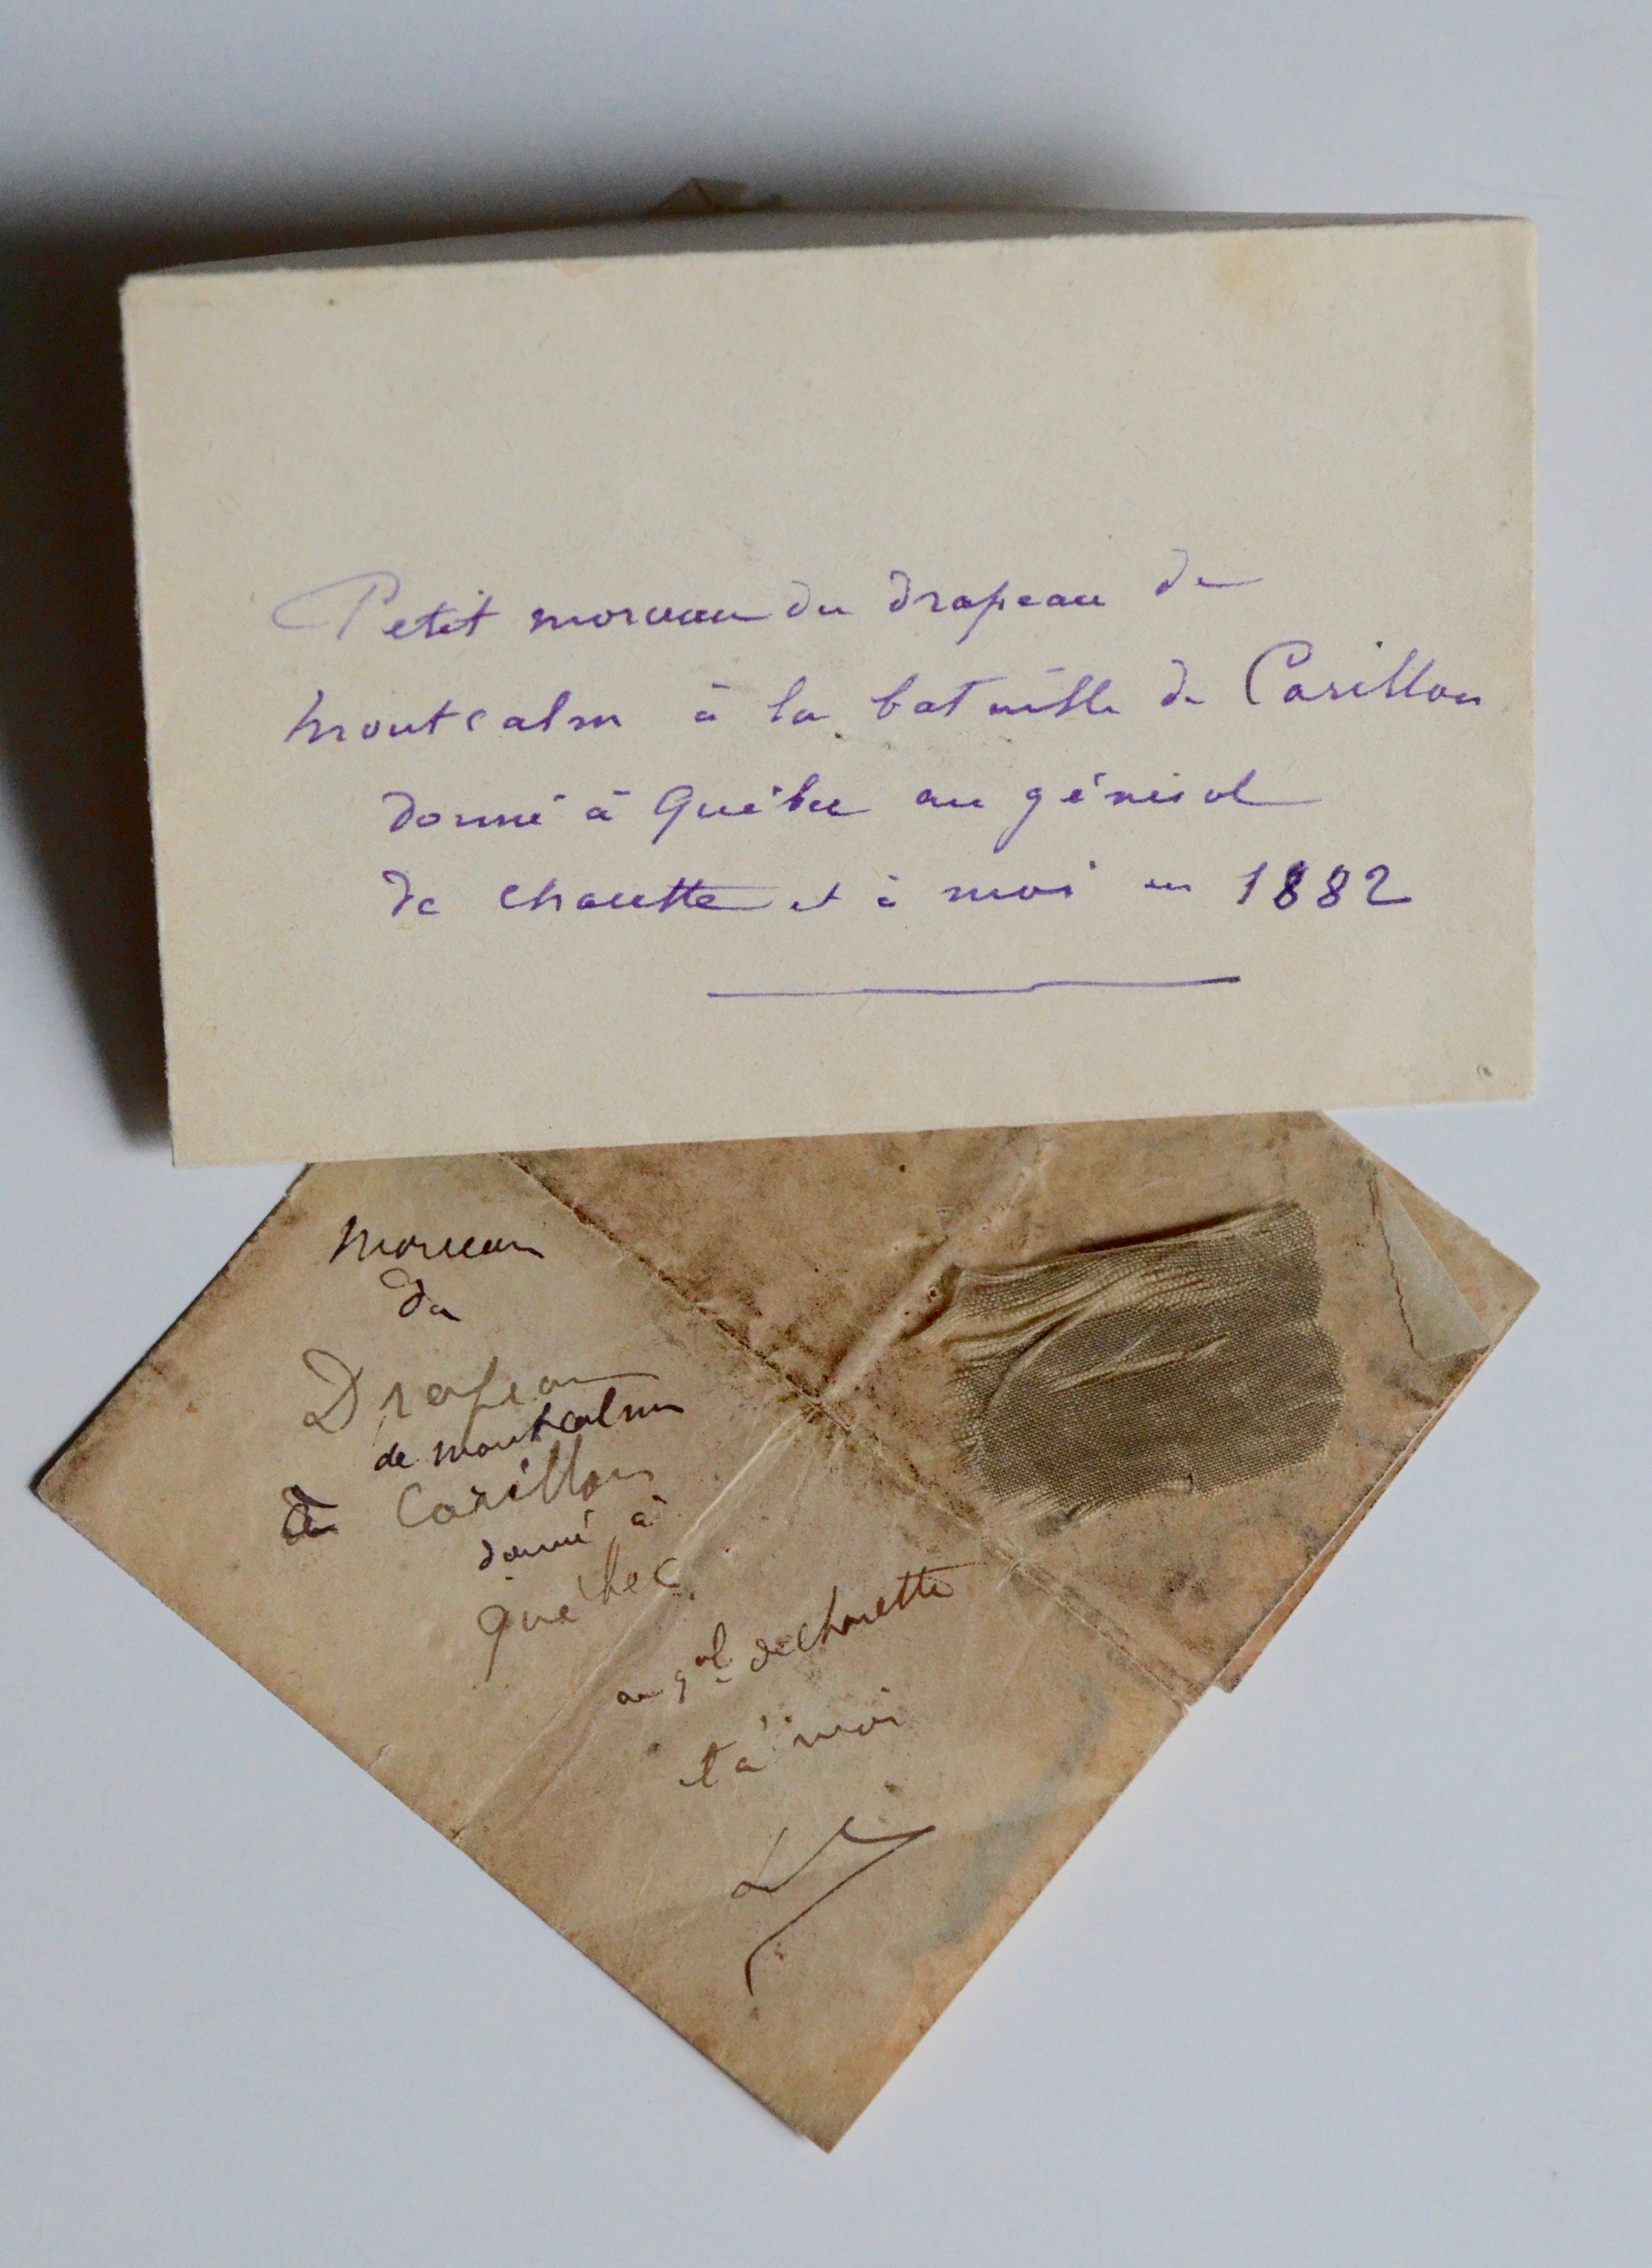 Petit morceau du drapeau de
Montcalm à la bataille de Carillon
donné à Québec au général
de Charette et à moi en 1882
Morceau
du
Drapeau
de Montcalm
à Carillon
donné à
Québec
au gal de Charette
et à moi